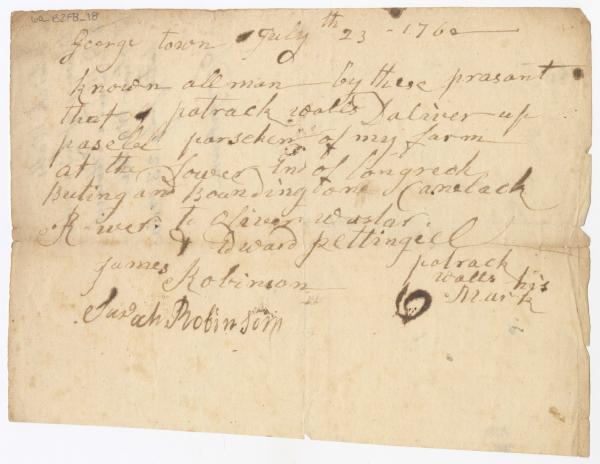 6a-B2FB_18
George town July th 23 - 1760
known all man by these prasant
that I patrack walls Daliver up
paseble parschen of my farm
at the Lower End of Longrech
Buting and Bounding one Caneback
River to Oliver
& Edward pettingeel
James Robinson
Sarah Robinson
patrack
walls his
Mark